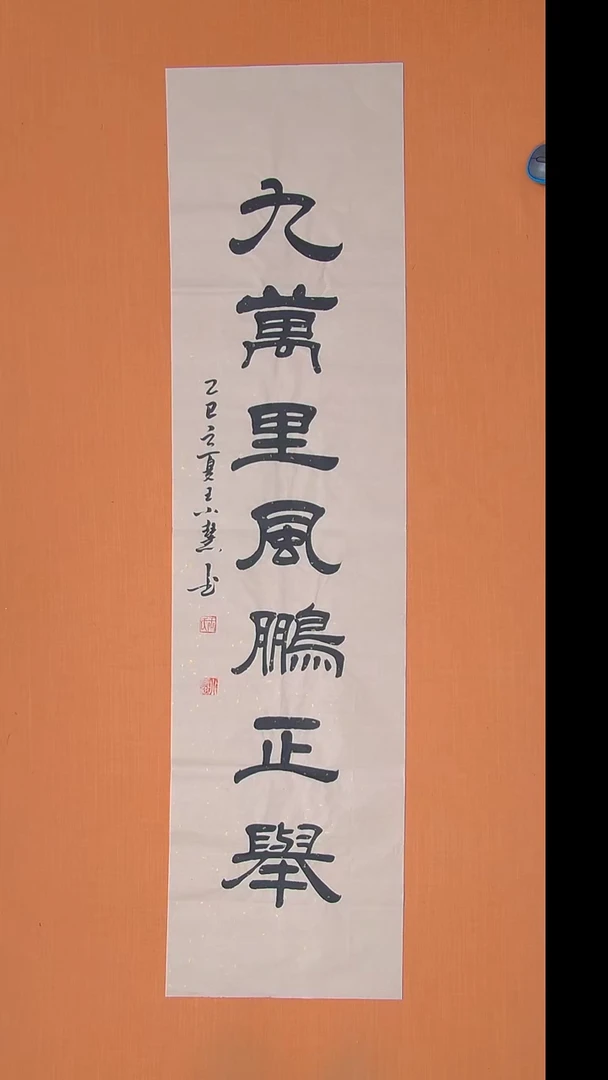 九萬里風鵬正舉
乙巳之夏王小慧书